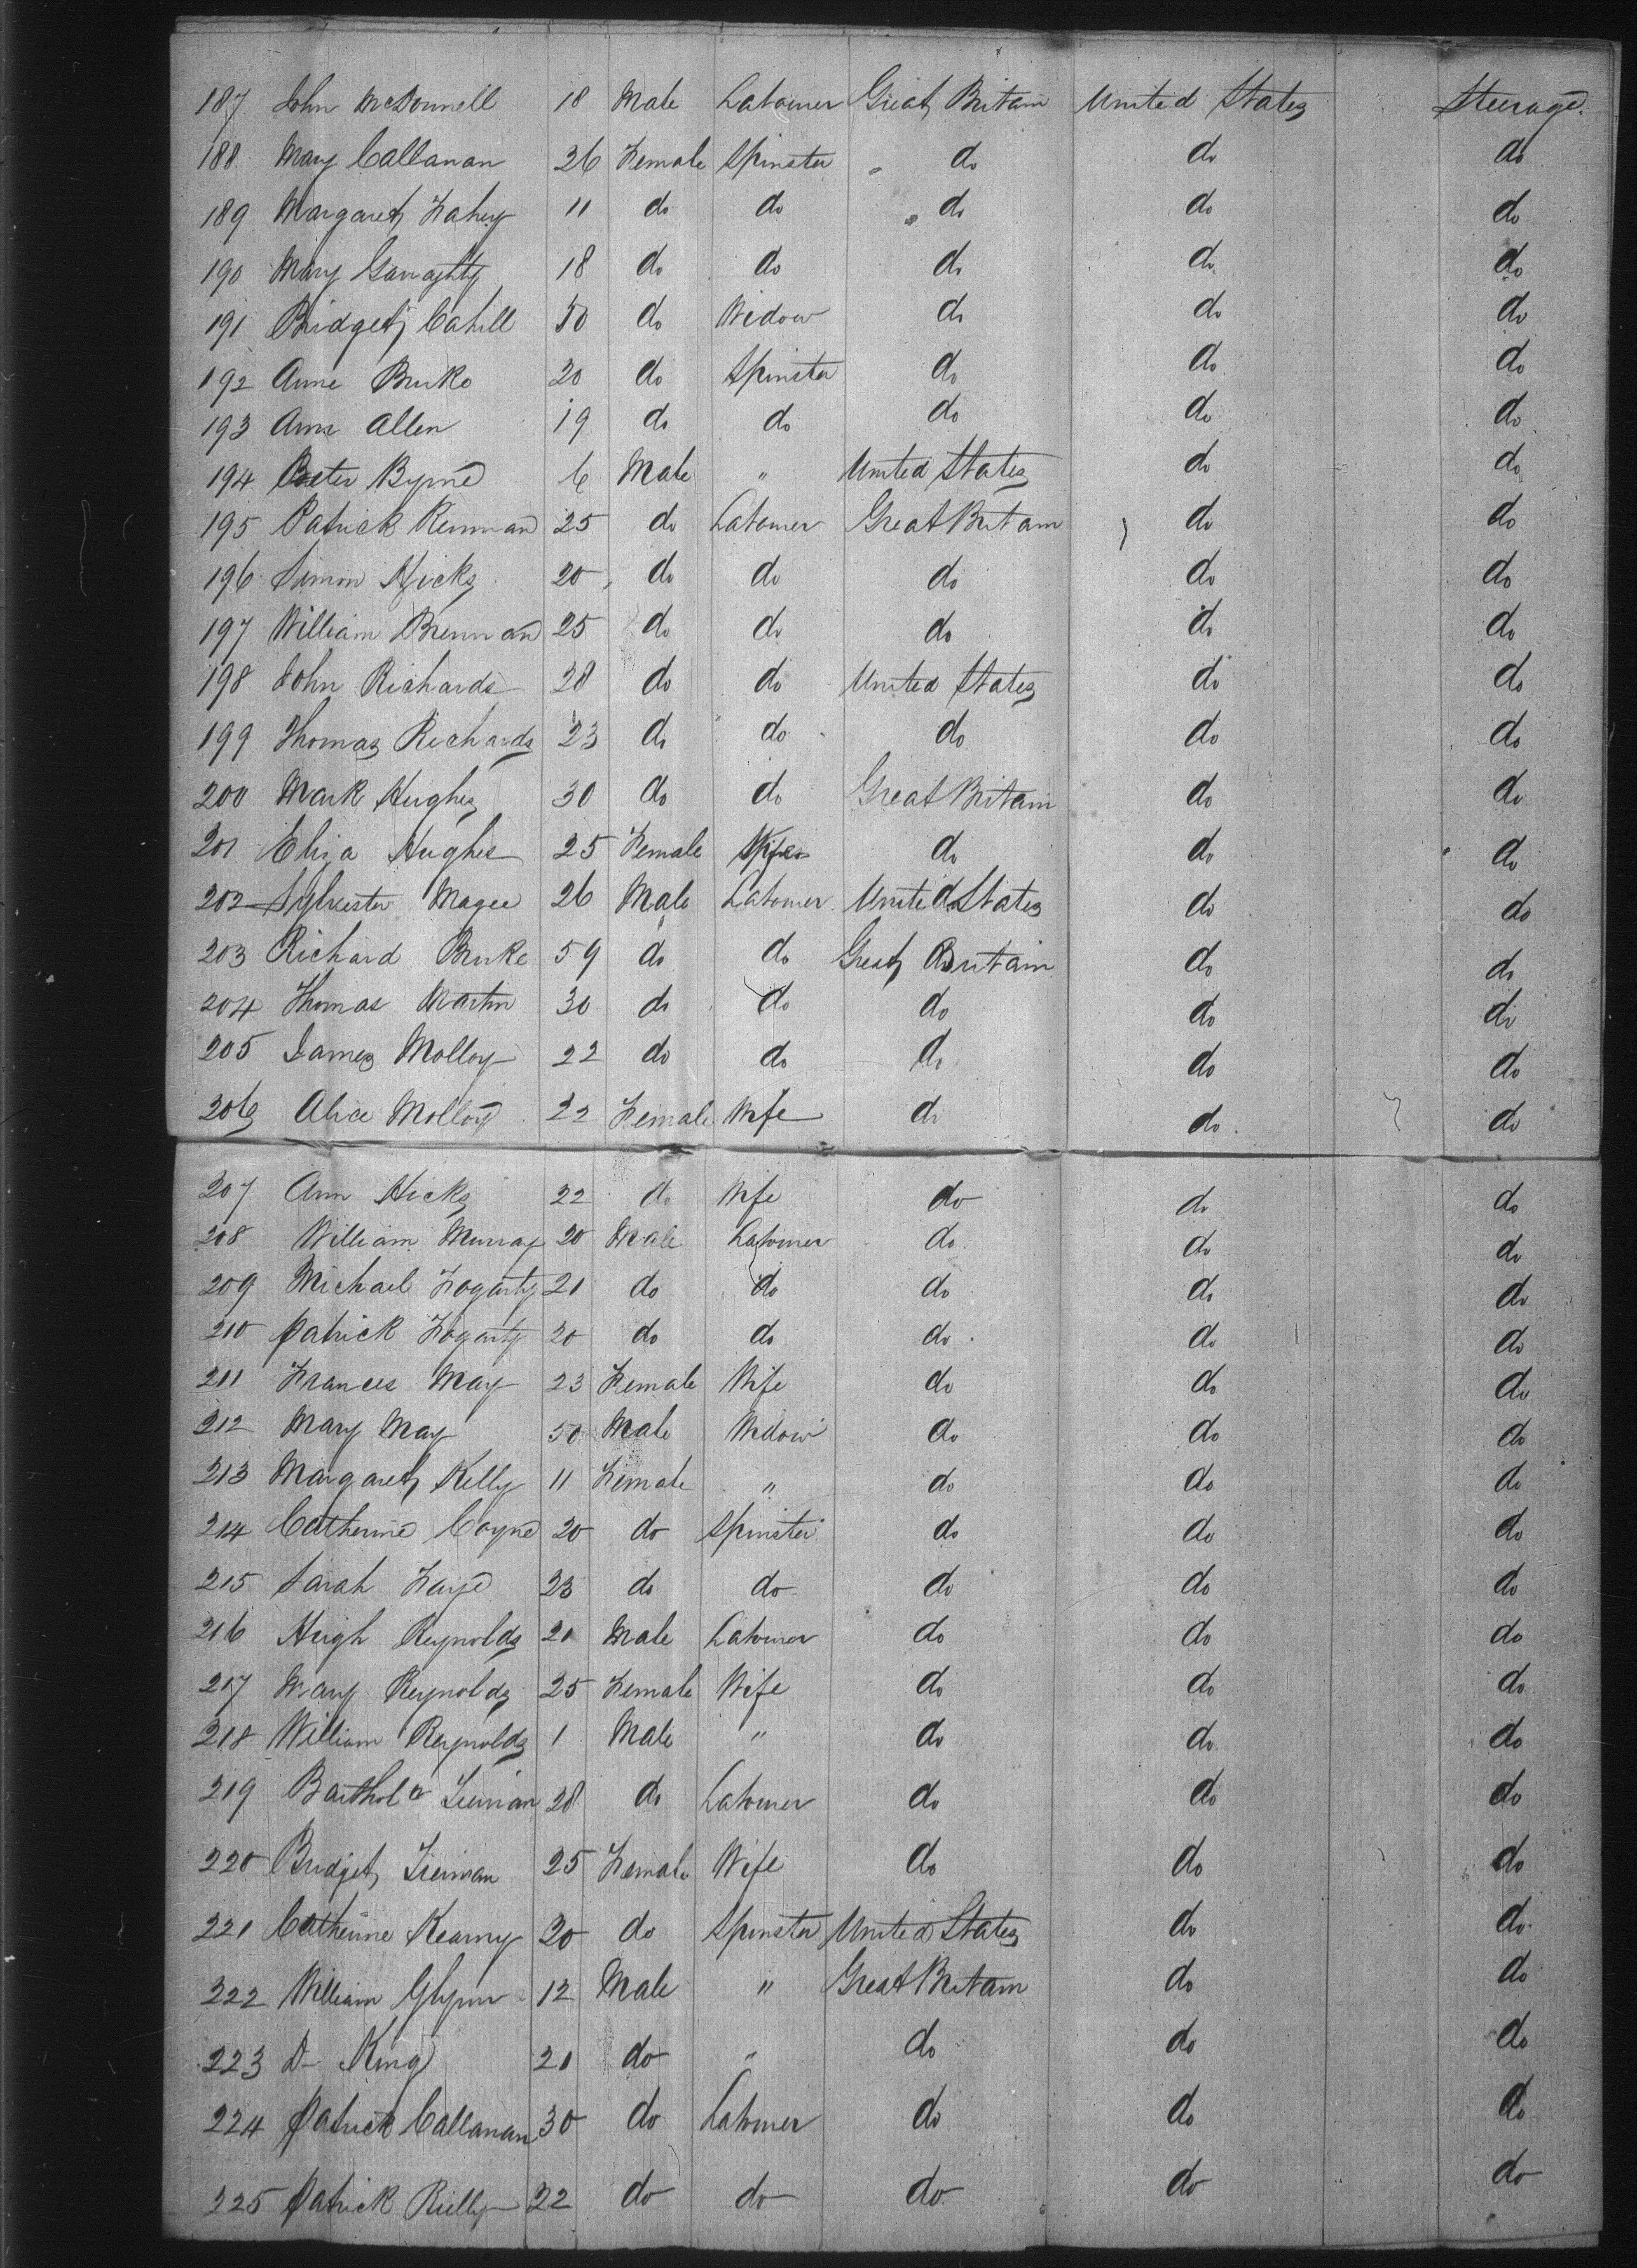 187 John McDonnell 18 Male Labourer Great Britain United States Steerage.
188 Mary Callanan 26 Female Spinster do do do
189 Margaret Fahey 11 do do do do do
190 Mary Garraghty 18 do do do do do
191 Bridget Cahill 50 do Widow do do do
192 Anne Burke 20 do Spinster do do do
193 Ann Allen 19 do do do do do
194 Peter Byrne 6 Male " United States do do
195 Patrick Rennan 25 do Labourer Great Britain do do
196 Simon Hicks 20 do do do do do
197 William Brennan 25 do do do do do
198 John Richards 28 do do United States do do
199 Thomas Richards 23 do do do do do
200 Mark Hughes 30 do do Great Britain do do
201 Eliza Hughes 25 Female Wife do do do
202 Sylvester Magee 26 Male Labourer United States do do
203 Richard Burke 59 do do Great Britain do do
204 Thomas Martin 30 do do do do do
205 James Molloy 22 do do do do do
206 Alice Molloy 22 Female Wife do do do
207 Ann Hicks 22 do Wife do do do
208 William Murray 20 Male Labourer do do do
209 Michael Fogarty 21 do do do do do
210 Patrick Fogarty 20 do do do do do
211 Frances May 23 Female Wife do do do
212 Mary May 50 Male Widow do do do
213 Margaret Kelly 11 Female " do do do
214 Catherine Coyne 20 do Spinster do do do
215 Sarah Faye 23 do do do do do
216 Hugh Reynolds 21 Male Labourer do do do
217 Mary Reynolds 25 Female Wife do do do
218 William Reynolds 1 Male " do do do
219 Barthol<sup>w</sup> Tiernan 28 do Labourer do do do
220 Bridget Tiernan 25 Female Wife do do do
221 Catherine Kearny 20 do Spinster United States do do
222 William Glynn 12 Male " Great Britain do do
223 D- King 21 do " do do do
224 Patrick Callanan 30 do Labourer do do do
225 Patrick Rielly 22 do do do do do